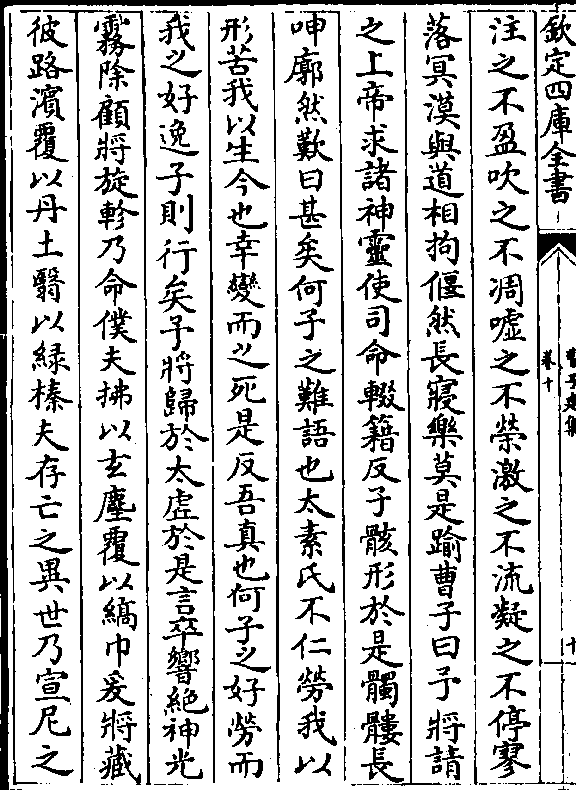 欽定四庫全書
曹子建集
卷十
十
注之不盈吹之不凋噓之不榮激之不流凝之不停寥
落冥漠與道相拘偃然長寢樂莫是踰曹子曰予將請
之上帝求諸神靈使司命輟籍反子骸形於是髑髏長
呻廓然歎曰甚矣何子之難語也太素氏不仁勞我以
形苦我以生今也幸變而之死是反吾真也何子之好勞而
我之好逸子則行矣予將歸於太虛於是言卒響絕神光
霧除顧將旋軫乃命僕夫拂以玄塵覆以縞巾爰將藏
彼路濱覆以丹土翳以綠榛夫存亡之異世乃宣尼之